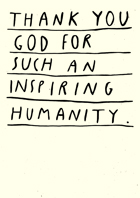 THANK YOU
GOD FOR
SUCH AN
INSPIRING
HUMANITY.